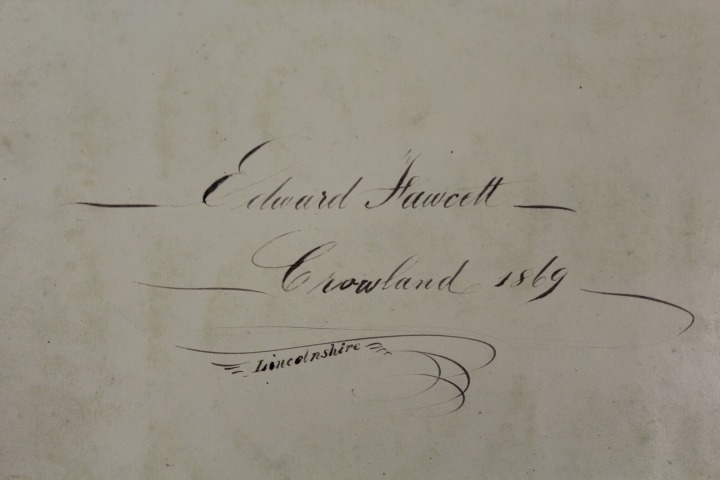 Edward Fawcett
Crowland 1869
Lincolnshire